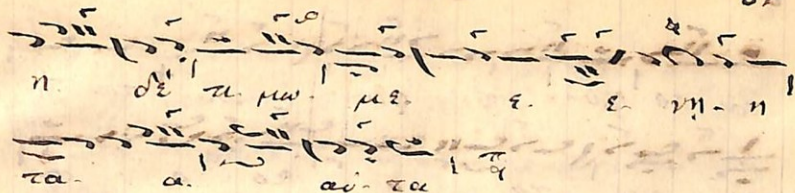 η. δέ τι μω. με. ε. ε. νη - η
τα. α. αὐ - τα